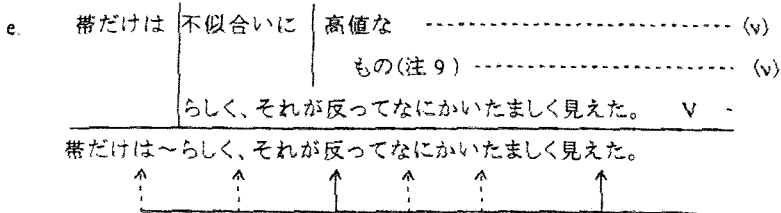 e. 帯だけは 不似合いに 高値な ---------- (v)
もの(注9) ---------- (v)
らしく、それが反ってなにかいたましく見えた。 V -
帯だけは～らしく、それが反ってなにかいたましく見えた。